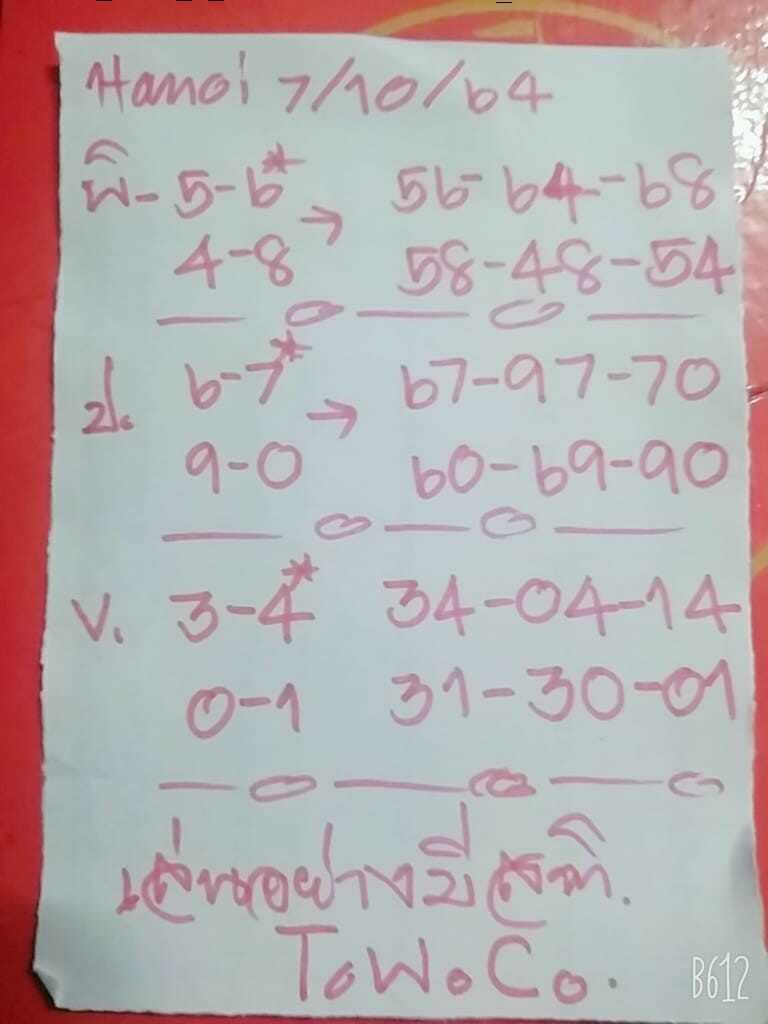 Hanoi 7/10/64
พิ- 5-6* → 56-64-68
4-8 58-48-54
ป. 6-7* → 67-97-70
9-0 60-69-90
V. 3-4* 34-04-14
0-1 31-30-01
เล่นอย่างมีสติ.
T.W.C.
B612